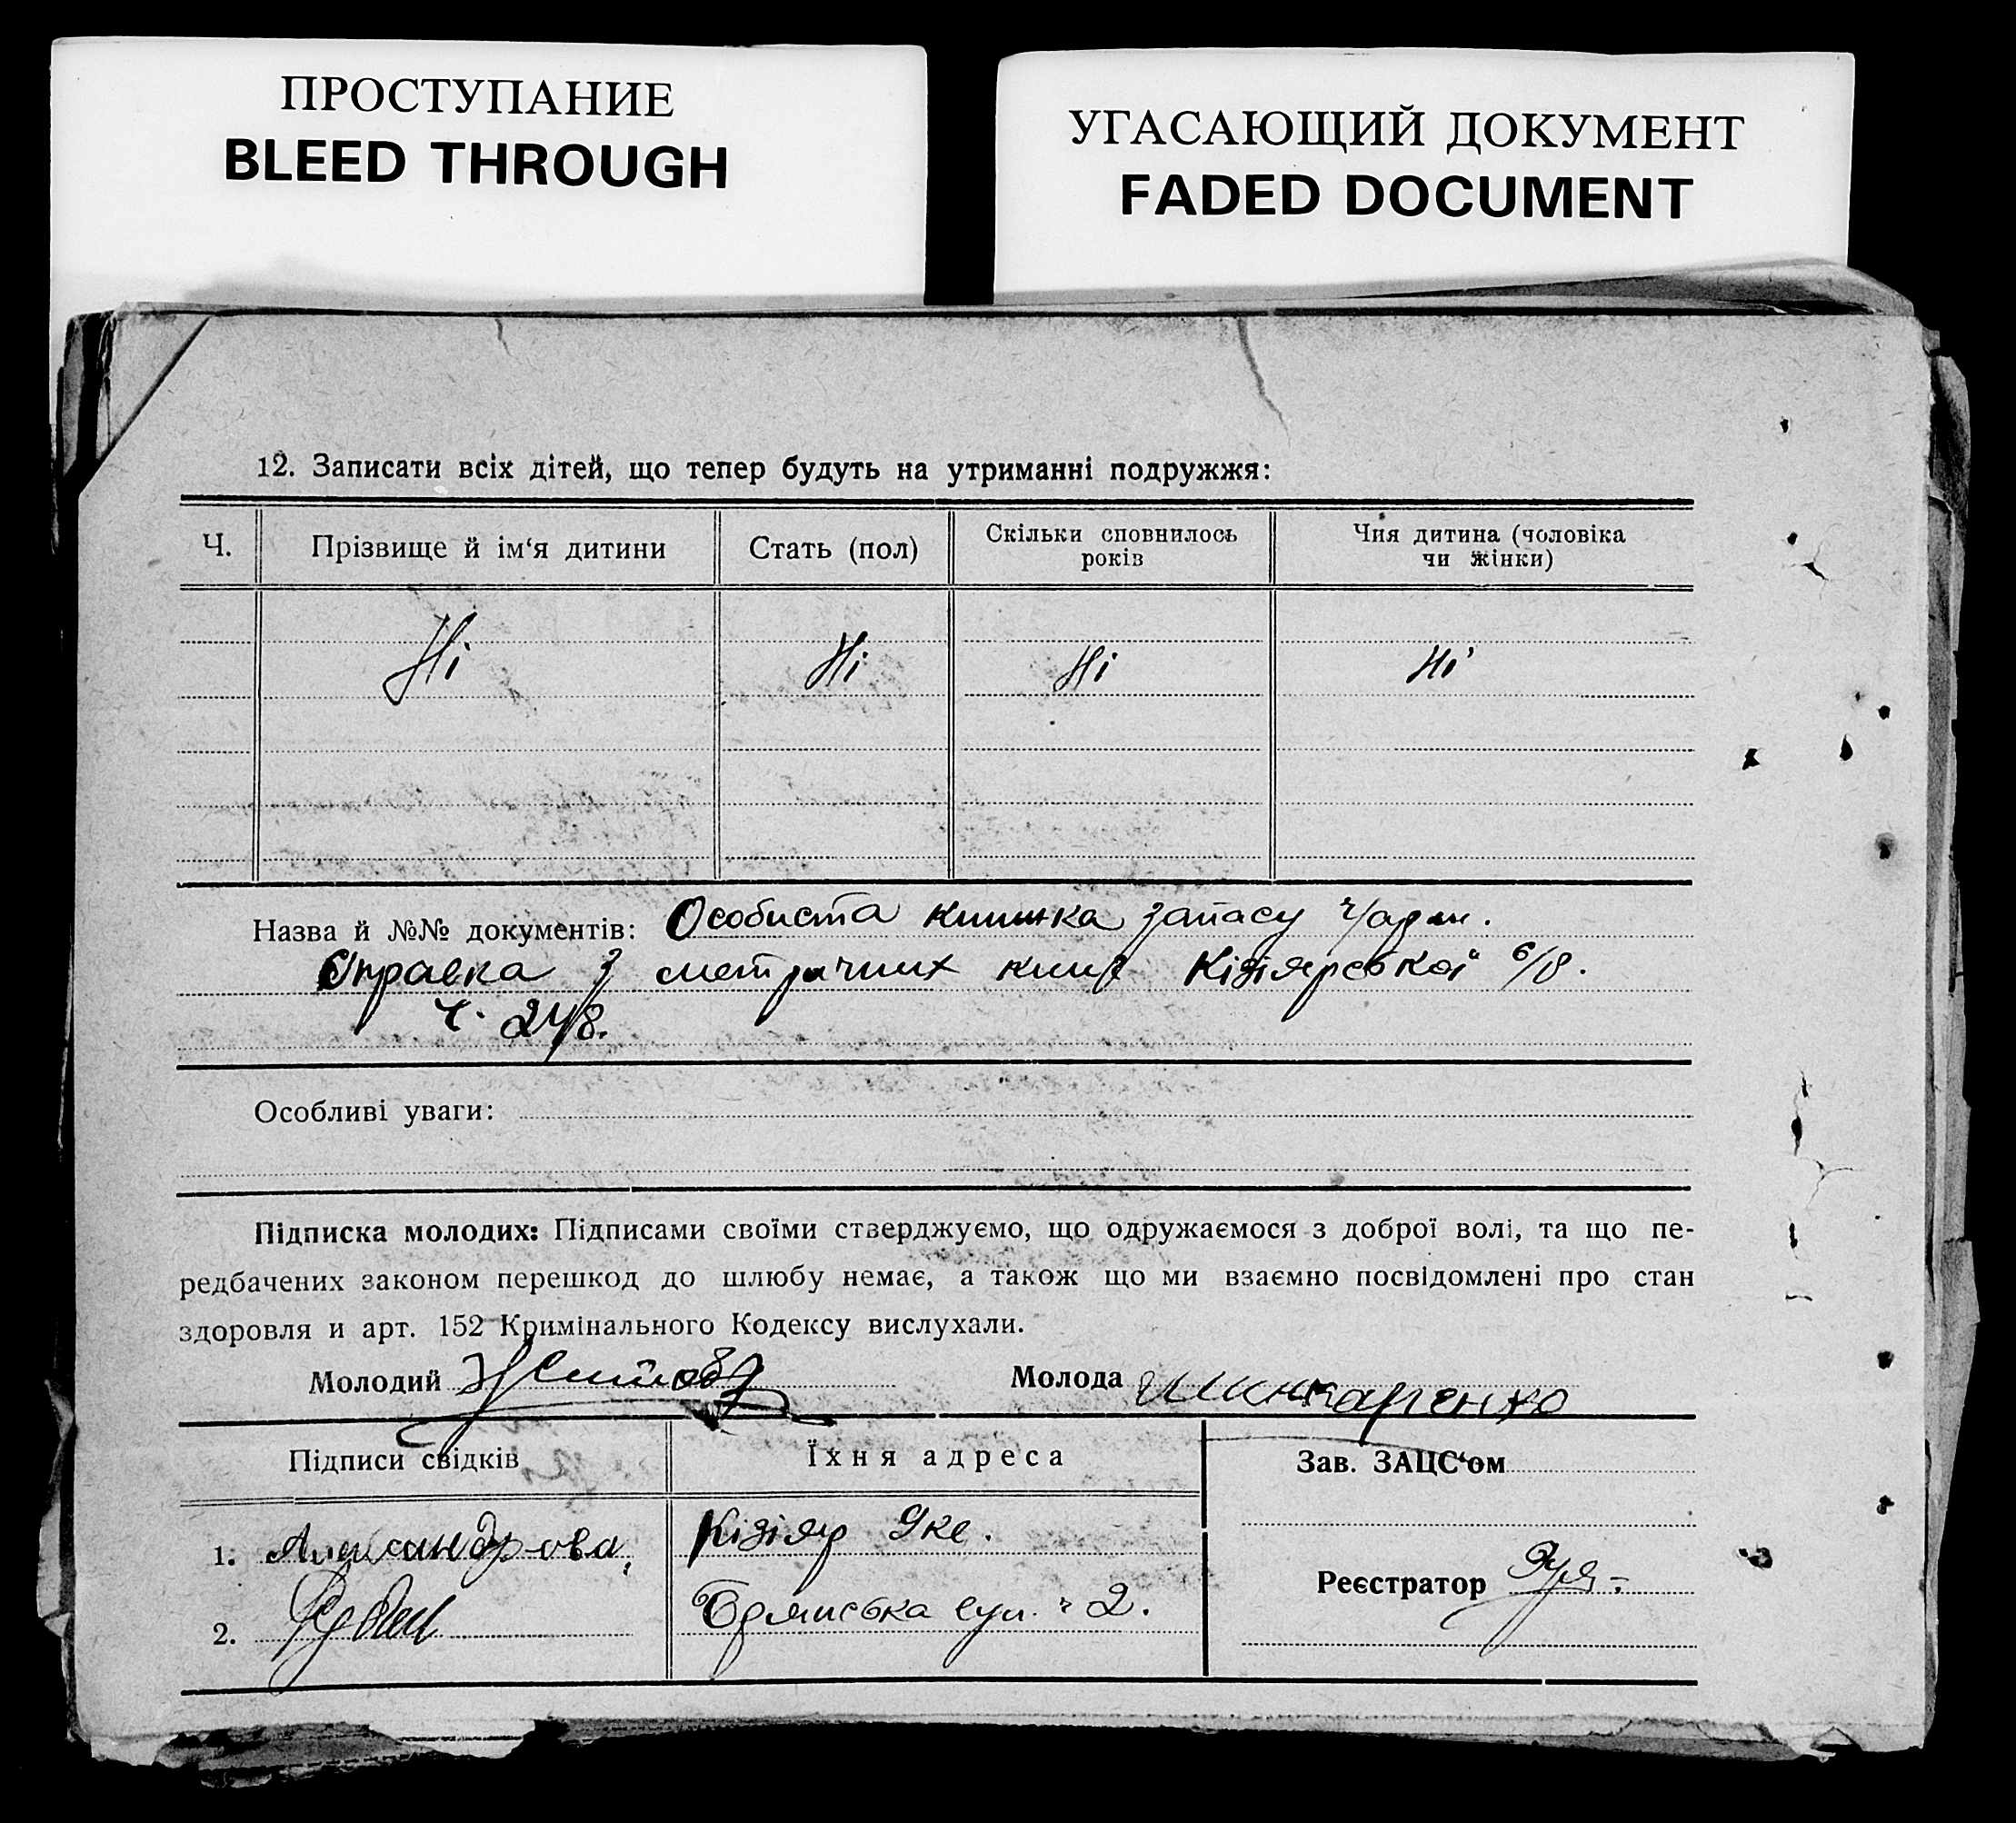 ПРОСТУПАНИЕ
BLEED THROUGH
УГАСАЮЩИЙ ДОКУМЕНТ
FADED DOCUMENT
12. Записати всіх дітей, що тепер будуть на утриманні подружжя:
Ч. Прізвище й ім‘я дитини Стать (пол) Скільки сповнилось років Чия дитина (чоловіка чи жінки)
Ні Ні Ні Ні
Назва й №№ документів: Особиста книжка запасу
Справка з метричних книг Кізіярської с/в.
ч. 24/8.
Особливі уваги:
Підписка молодих: Підписами своїми стверджуємо, що одружаємося з доброї волі, та що пе-
редбачених законом перешкод до шлюбу немає, а також що ми взаємно посвідомлені про стан
здоровля и арт. 152 Кримінального Кодексу вислухали.
Молодий Молода Шинкаренко
Підписи свідків Їхня адреса Зав. ЗАЦС‘ом
1. Александрова, Кізіяр
Реєстратор
2. вул. 2.